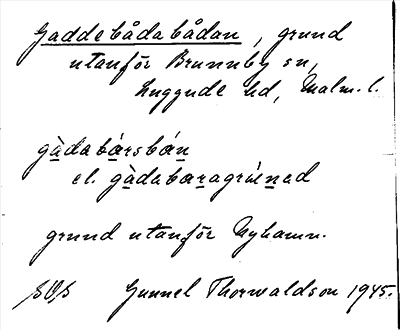 Gaddebådabådan, grund
utanför Brunnby sn,
Luggude hd, Malm. l.
gàdabársbán
el. gàdabaragrúnad
grund utanför Nyhamn.
SOS Gunnel Thorwaldson 1945.